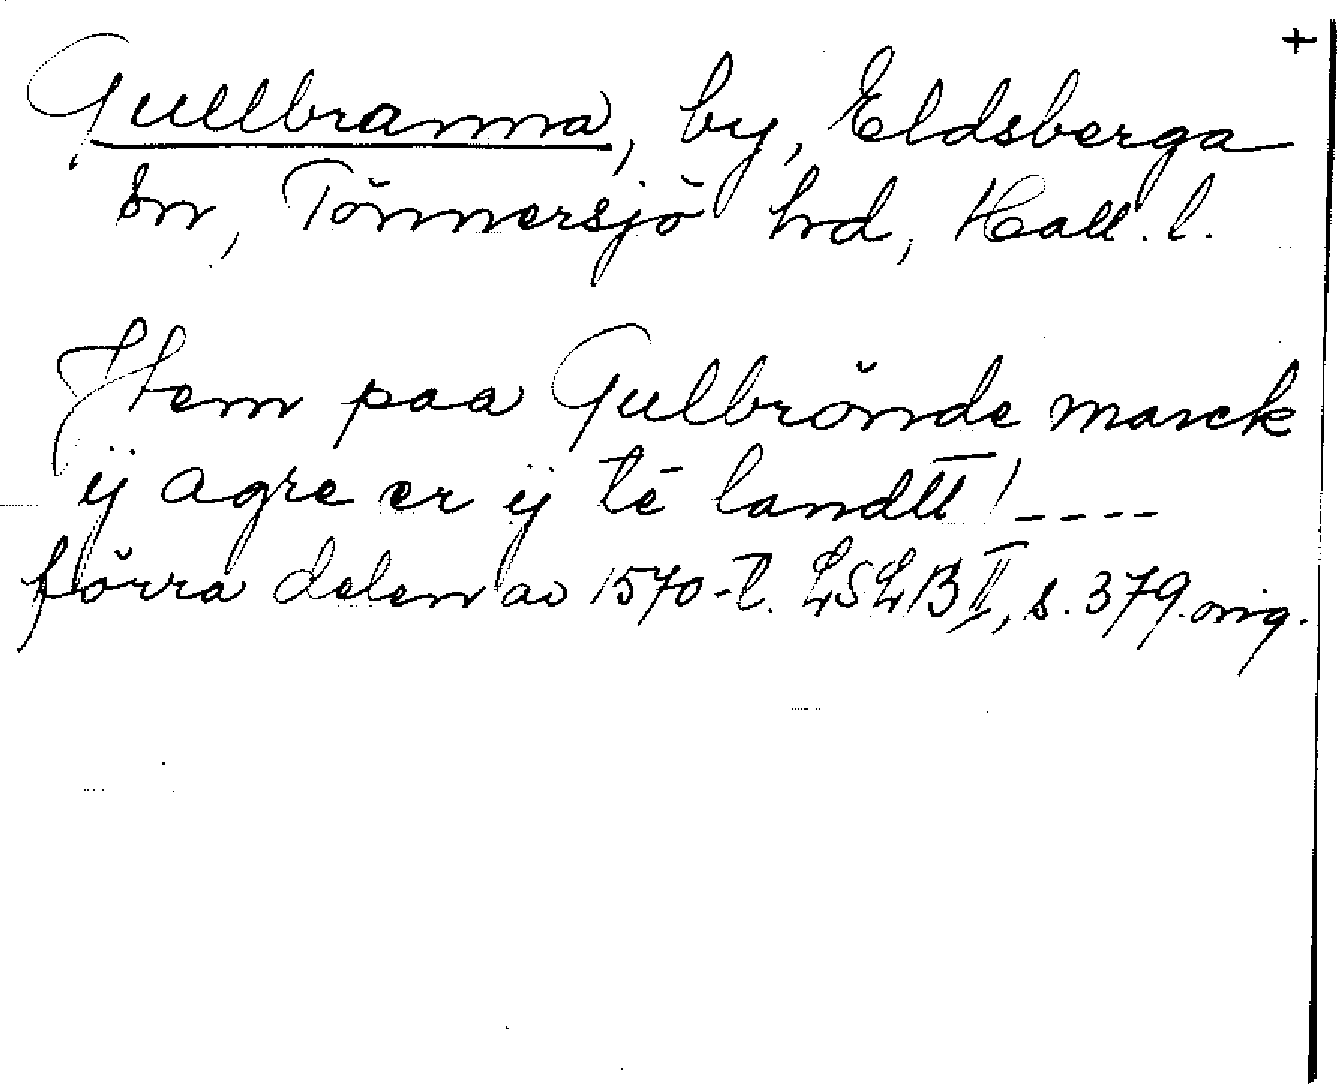 +
Gullbranna, by, Eldsberga
sn, Tönnersjö hd, Hall. l.
Jtem paa Gulbrönde marck
ij agre er ij tē landtt! ----
förra delen av 1570-t. LSLB II, s. 379. orig.